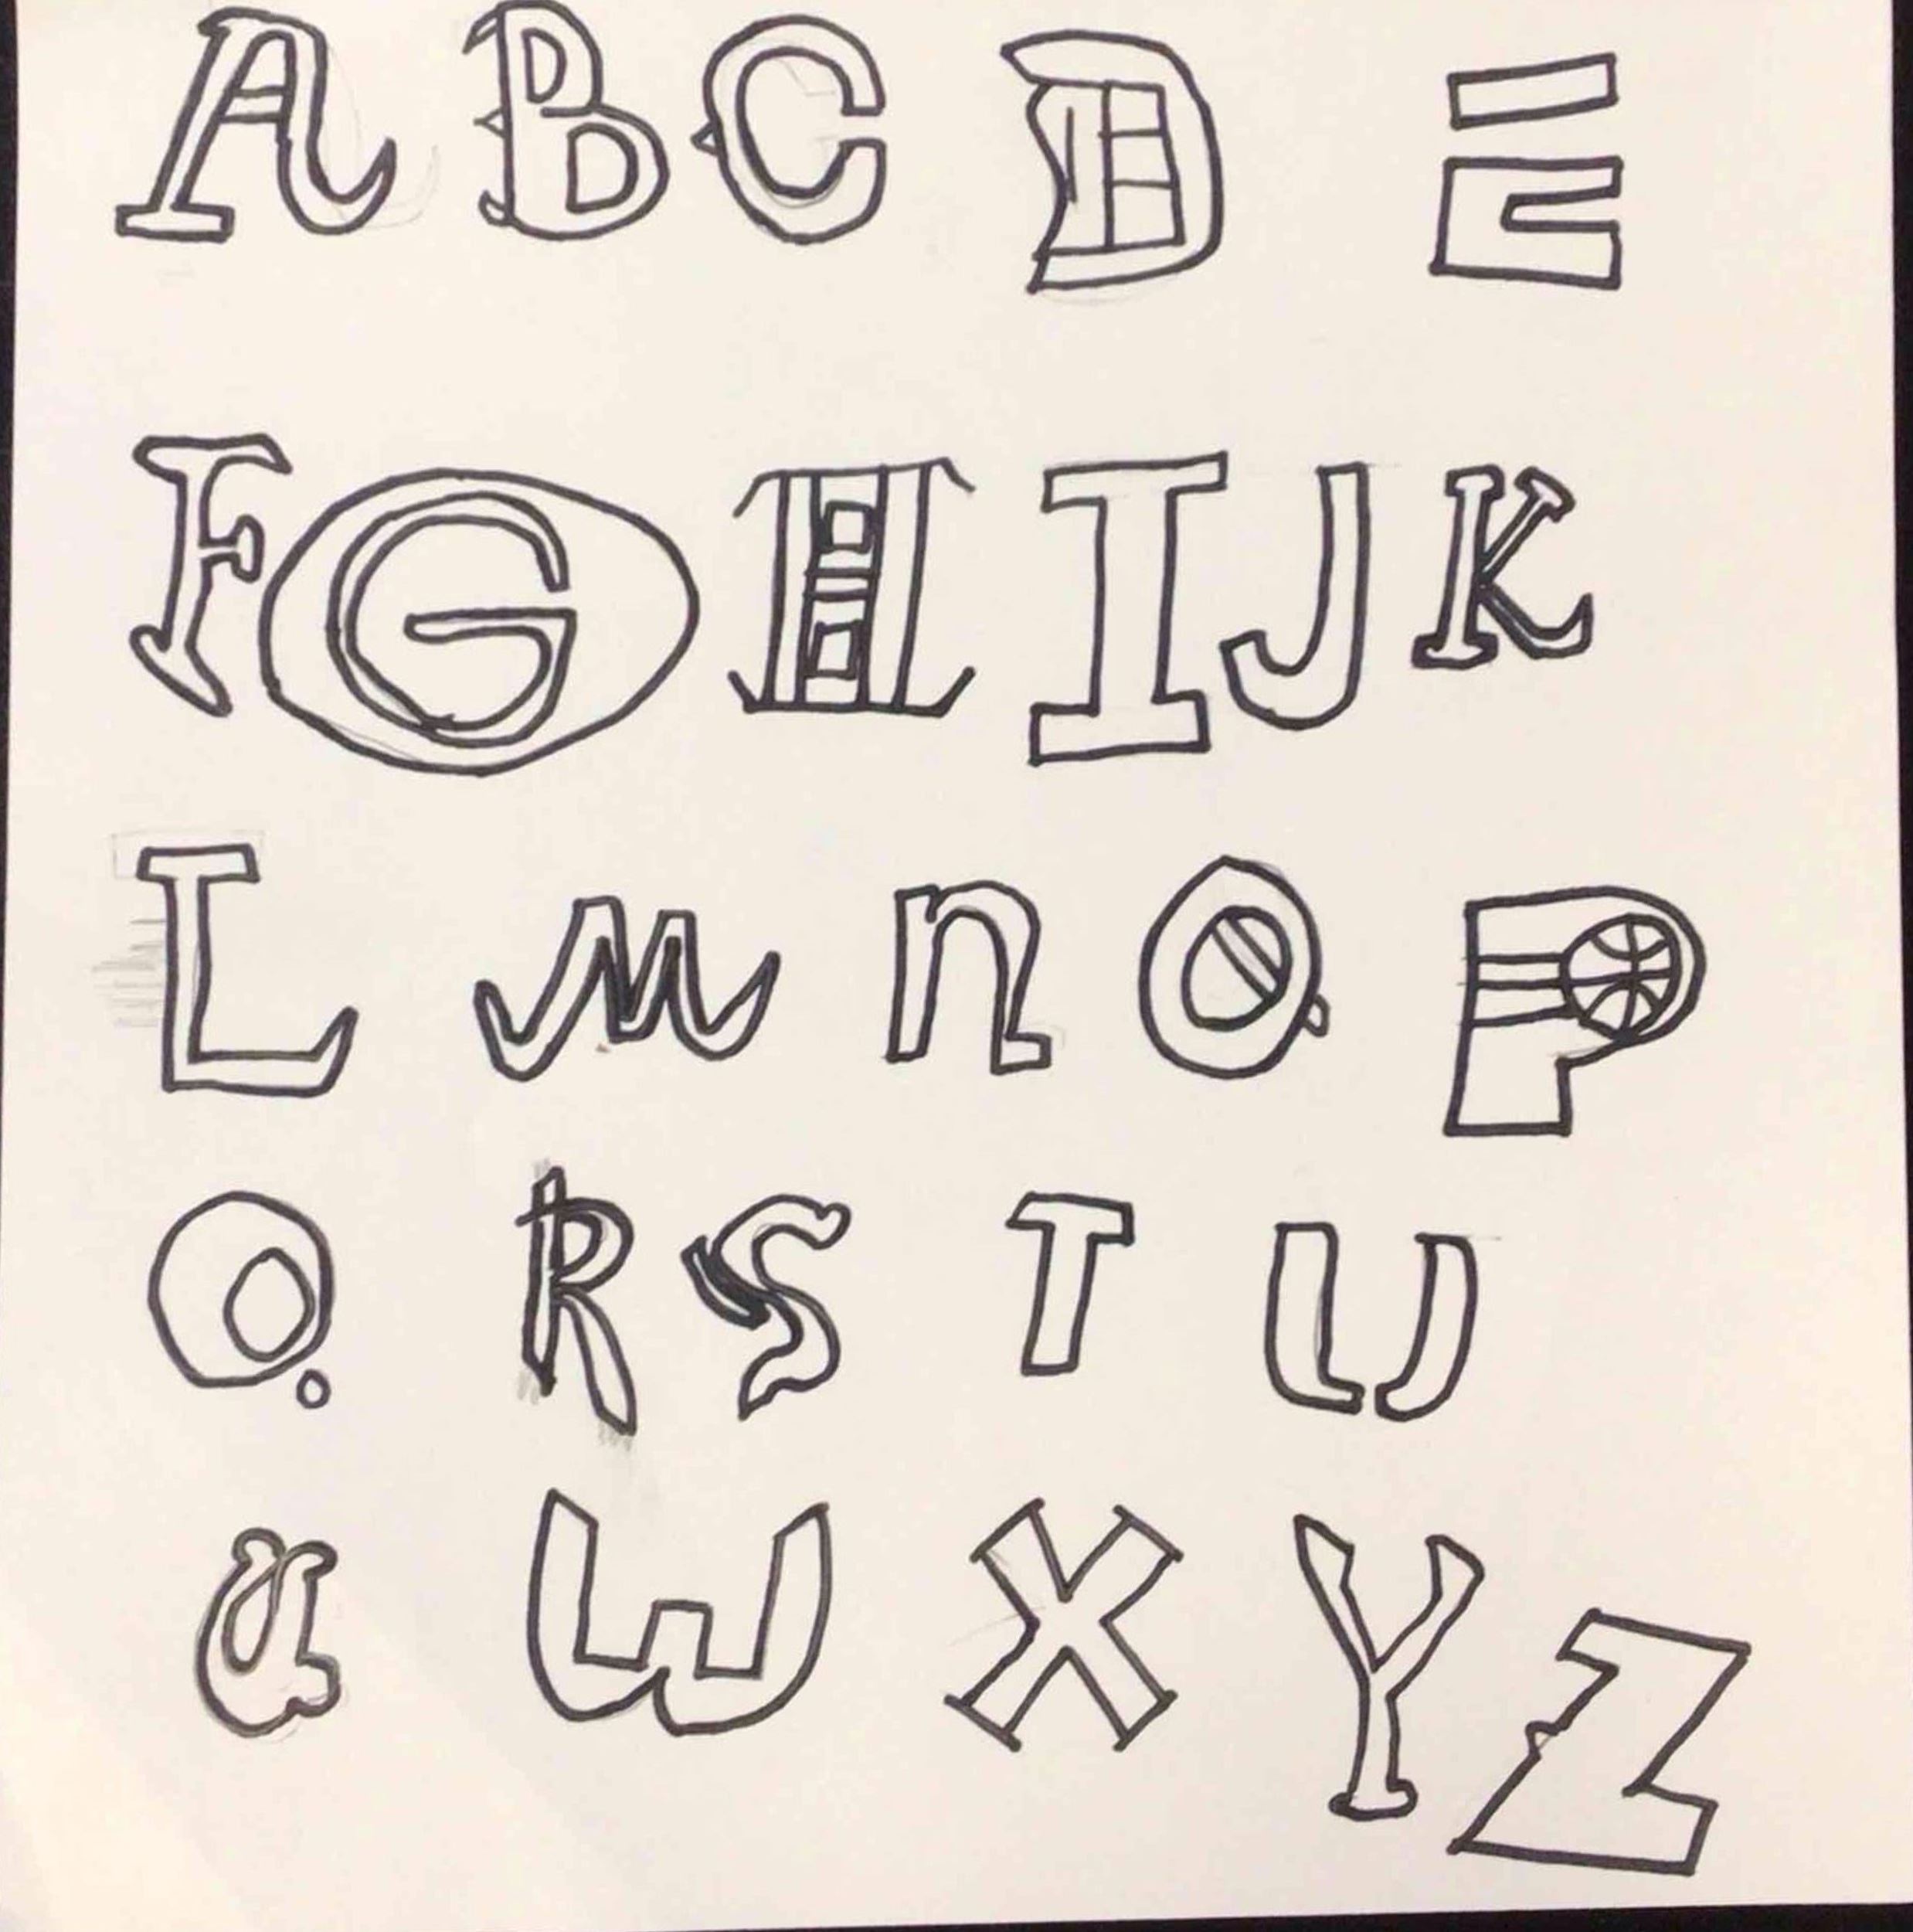 A B C D E
F G H I J K
L M n O P
Q R S T U
V W X Y Z